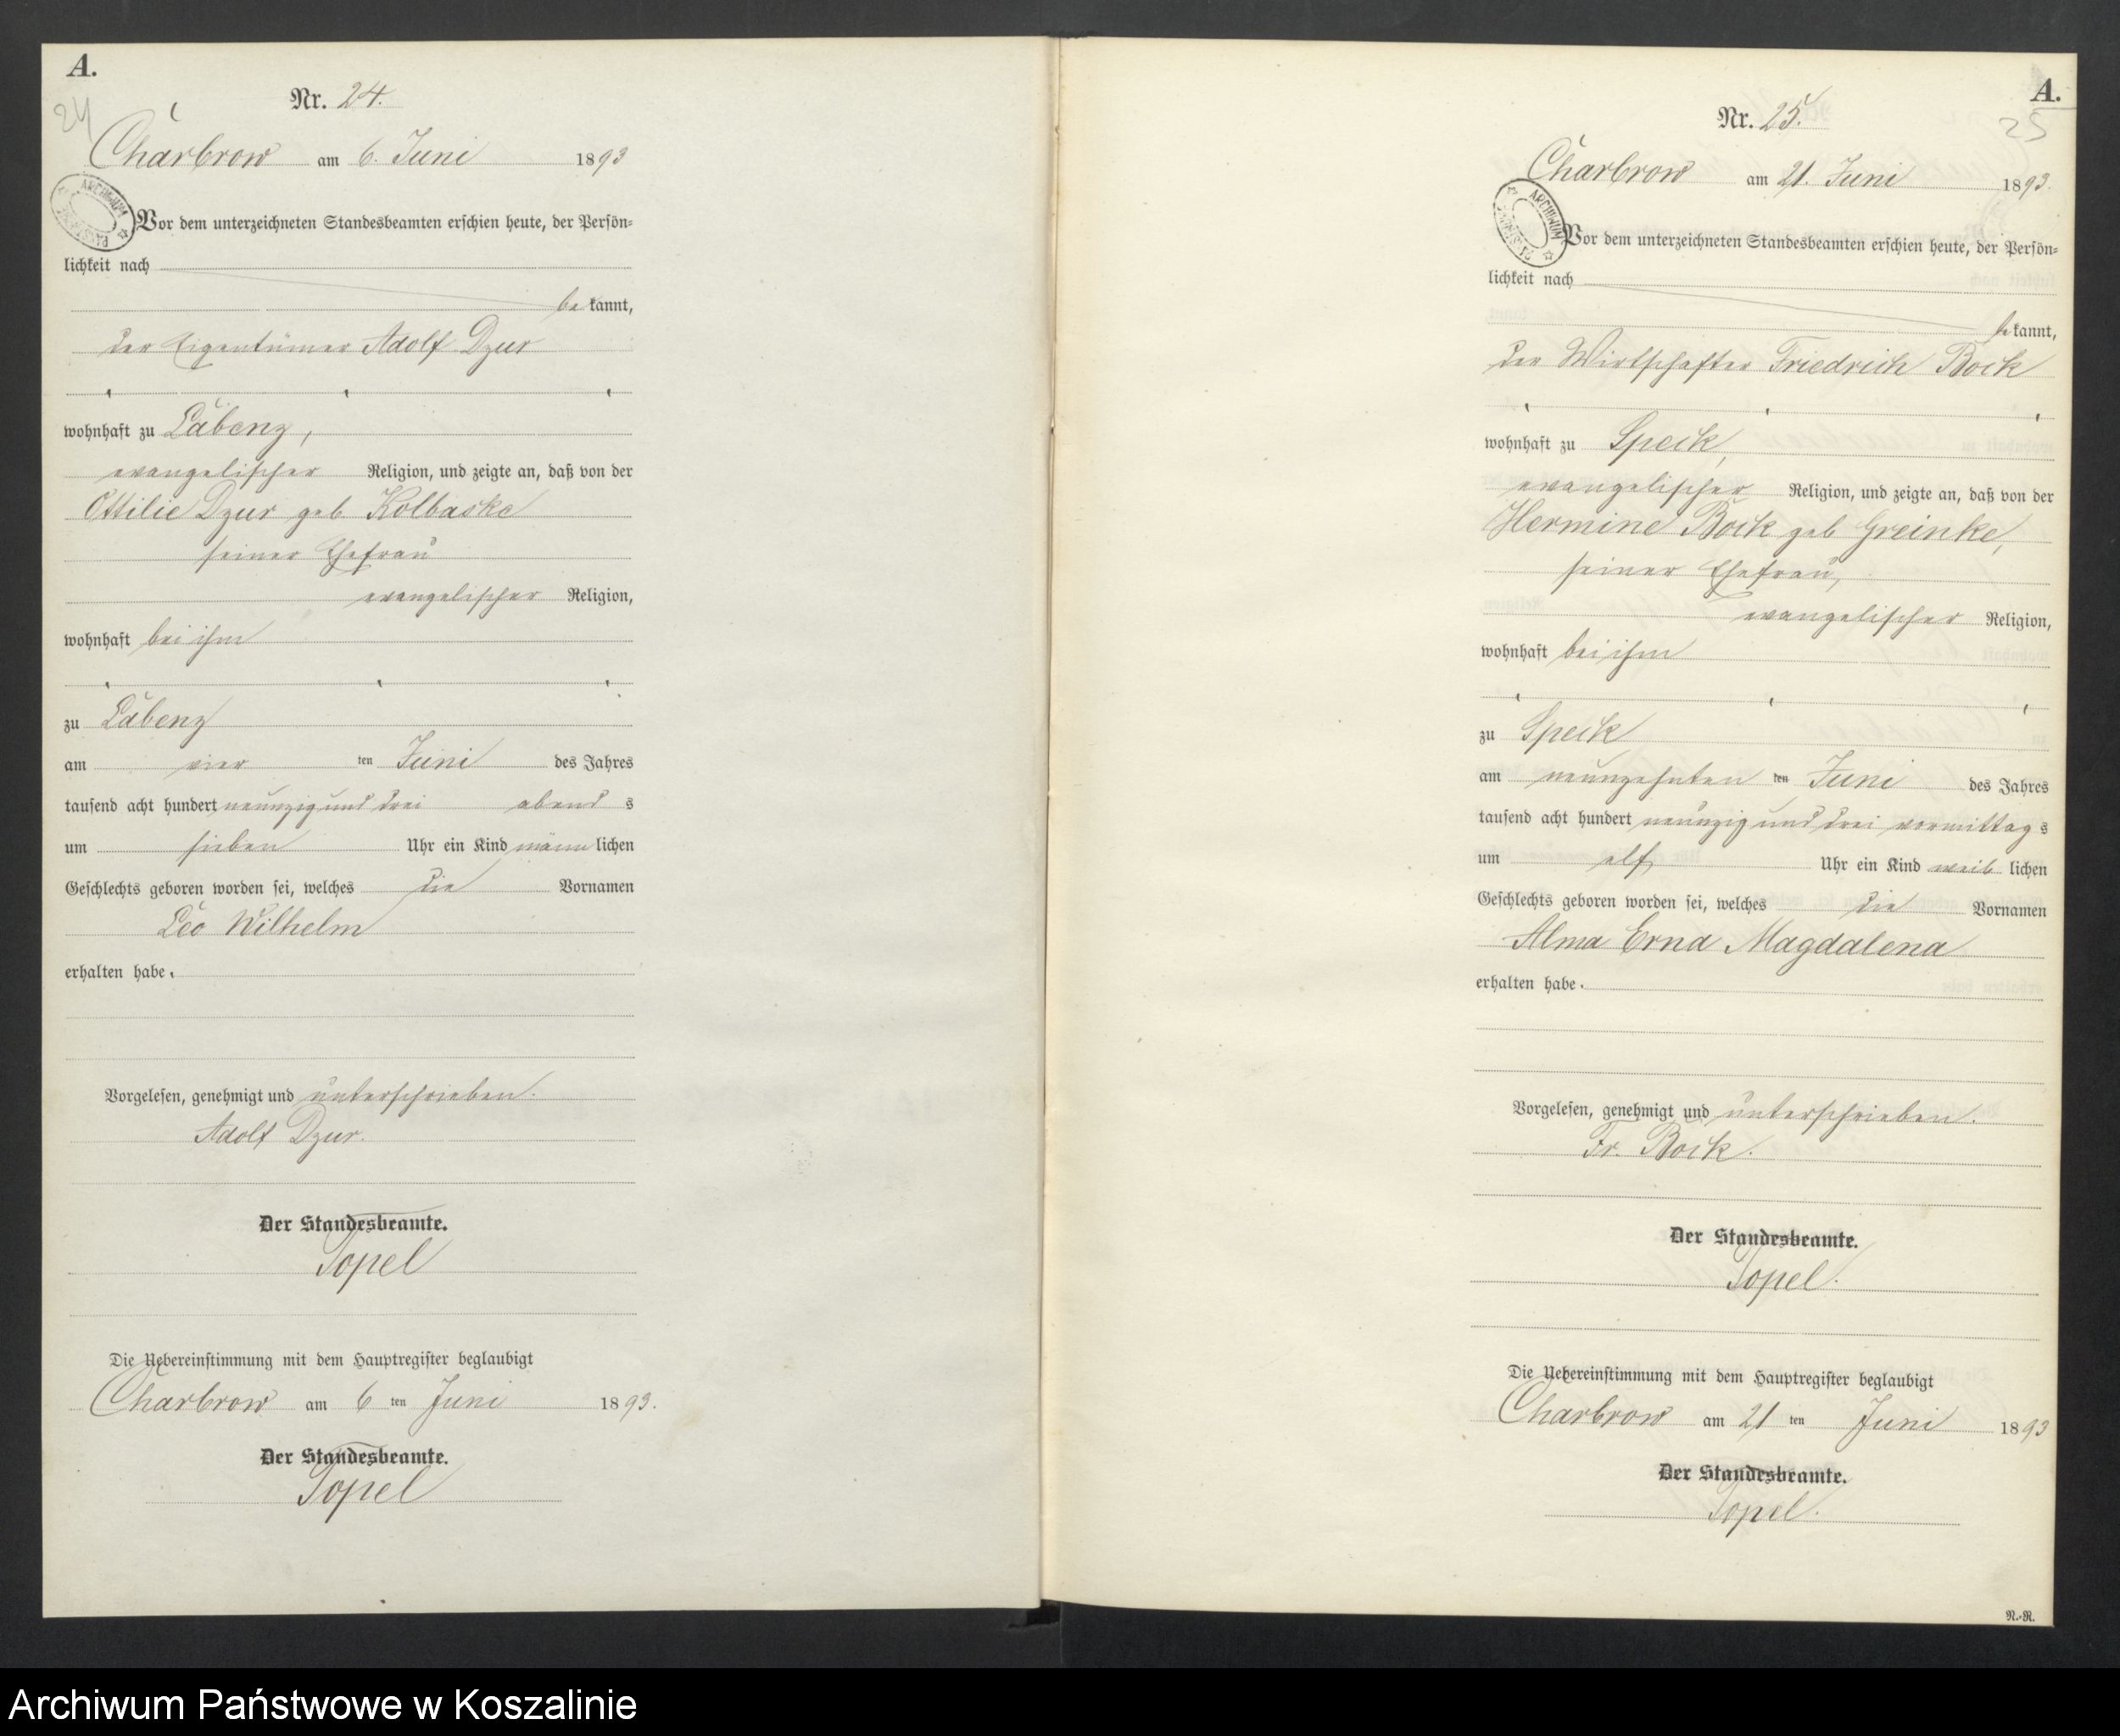 A.
24
Nr. 24.
Charbrow am 6. Juni 1893
ARCHIWUM
Vor dem unterzeichneten Standesbeamten erschien heute, der Persön=
lichkeit nach
be kannt,
der Eigentümer Adolf Dzur
wohnhaft zu Labenz,
evangelischer Religion, und zeigte an, daß von der
Ottilie Dzur geb Kolbaske
seiner Ehefrau
evangelischer Religion,
wohnhaft bei ihm
zu Labenz
am vier ten Juni des Jahres
tausend acht hundert neunzig und drei abend s
um sieben Uhr ein Kind männ lichen
Geschlechts geboren worden sei, welches die Vornamen
Leo Wilhelm
erhalten habe.
Vorgelesen, genehmigt und unterschrieben.
Adolf Dzur.
Der Standesbeamte.
Topel
Die Uebereinstimmung mit dem Hauptregister beglaubigt
Charbrow am 6 ten Juni 1893.
Der Standesbeamte.
Topel
A.
25
Nr. 25.
Charbrow am 21. Juni 1893.
ARCHIWUM
Vor dem unterzeichneten Standesbeamten erschien heute, der Persön=
lichkeit nach
be kannt,
der Wirtschafter Friedrich Bock
wohnhaft zu Speck,
evangelischer Religion, und zeigte an, daß von der
Hermine Bock geb Greinke,
seiner Ehefrau,
evangelischer Religion,
wohnhaft bei ihm
zu Speck
am neunzehnten ten Juni des Jahres
tausend acht hundert neunzig und drei vormittag s
um elf Uhr ein Kind weib lichen
Geschlechts geboren worden sei, welches die Vornamen
Alma Erna Magdalena
erhalten habe.
Vorgelesen, genehmigt und unterschrieben.
Fr. Bock.
Der Standesbeamte.
Topel.
Die Uebereinstimmung mit dem Hauptregister beglaubigt
Charbrow am 21 ten Juni 1893
Der Standesbeamte.
Topel.
N.-R.
Archiwum Państwowe w Koszalinie